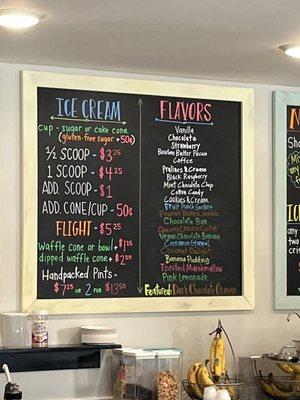 ICE CREAM
cup - sugar or cake cone
(gluten-free sugar +50¢)
½ SCOOP - $3.25
1 SCOOP - $4.25
ADD. SCOOP - $1
ADD. CONE/CUP - 50¢
FLIGHT - $5.25
Waffle cone or bowl + $1.25
dipped waffle cone + $2.25
Handpacked Pints -
$7.25 or 2 FOR $13.50
FLAVORS
Vanilla
Chocolate
Strawberry
Bourbon Butter Pecan
Coffee
Pralines & Cream
Black Raspberry
Mint Chocolate Chip
Cotton Candy
Cookies & Cream
Fruit Punch Sorbet
Chocolate Bar
Vegan Chocolate Banana
Coconut Delight
Banana Pudding
Toasted Marshmallow
Pink Lemonade
Featured: Dark Chocolate Orange